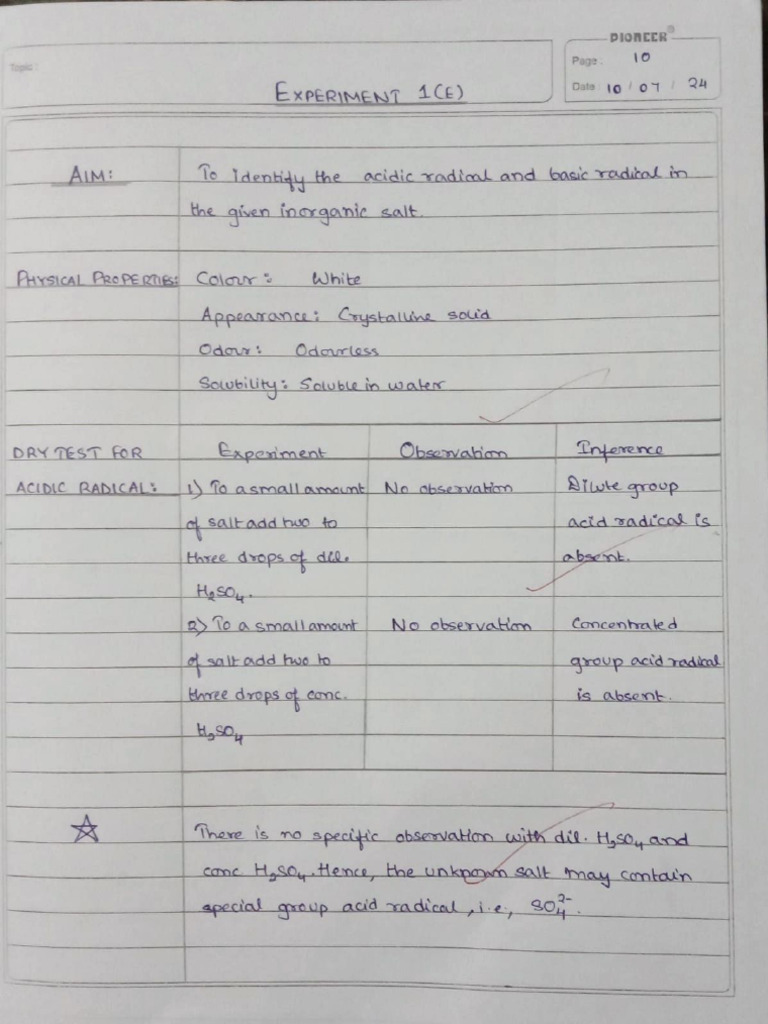 PIONEER
Topic:
Page: 10
Date: 10 / 07 / 24
EXPERIMENT 1(E)
AIM: To identify the acidic radical and basic radical in
the given inorganic salt.
PHYSICAL PROPERTIES: Colour: White
Appearance: Crystalline solid
Odour: Odourless
Solubility: Soluble in water
DRY TEST FOR Experiment Observation Inference
ACIDIC RADICAL: 1) To a small amount No observation Dilute group
of salt add two to acid radical is
three drops of dil. absent.
H₂SO₄.
2) To a small amount No observation Concentrated
of salt add two to group acid radical
three drops of conc. is absent.
H₂SO₄
There is no specific observation with dil. H₂SO₄ and
conc H₂SO₄. Hence, the unknown salt may contain
special group acid radical, i.e., SO₄²⁻.